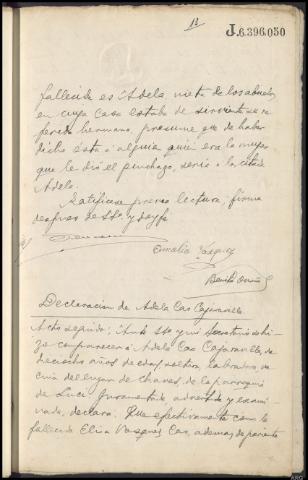 13
J.6.396.050
fallecida es Adela, nieta de los abuelos
en cuya casa estaba de sirviente su re-
ferido hermano, presume que de haber
dicho ésta a alguien quien era la mujer
que le dió el pinchazo, sería a la citada
Adela.
Ratifícase previa lectura, firma
despues de Sª y doy fe
Emalia Vazquez
Benito
Declaracion de Adela Cao Cajaraville
Acto seguido: Ante Sª y mi Secretario se hi-
zo comparecer a Adela Cao Cajaraville, de
dieciocho años de edad, soltera, labradora, ve-
cina del lugar de Chaves, de la parroquia
de Luci. Juramentada, advertida y exami-
nada, declara: Que efectivamente como la
fallecida Elisa Vazquez Cao, ademas de pariente